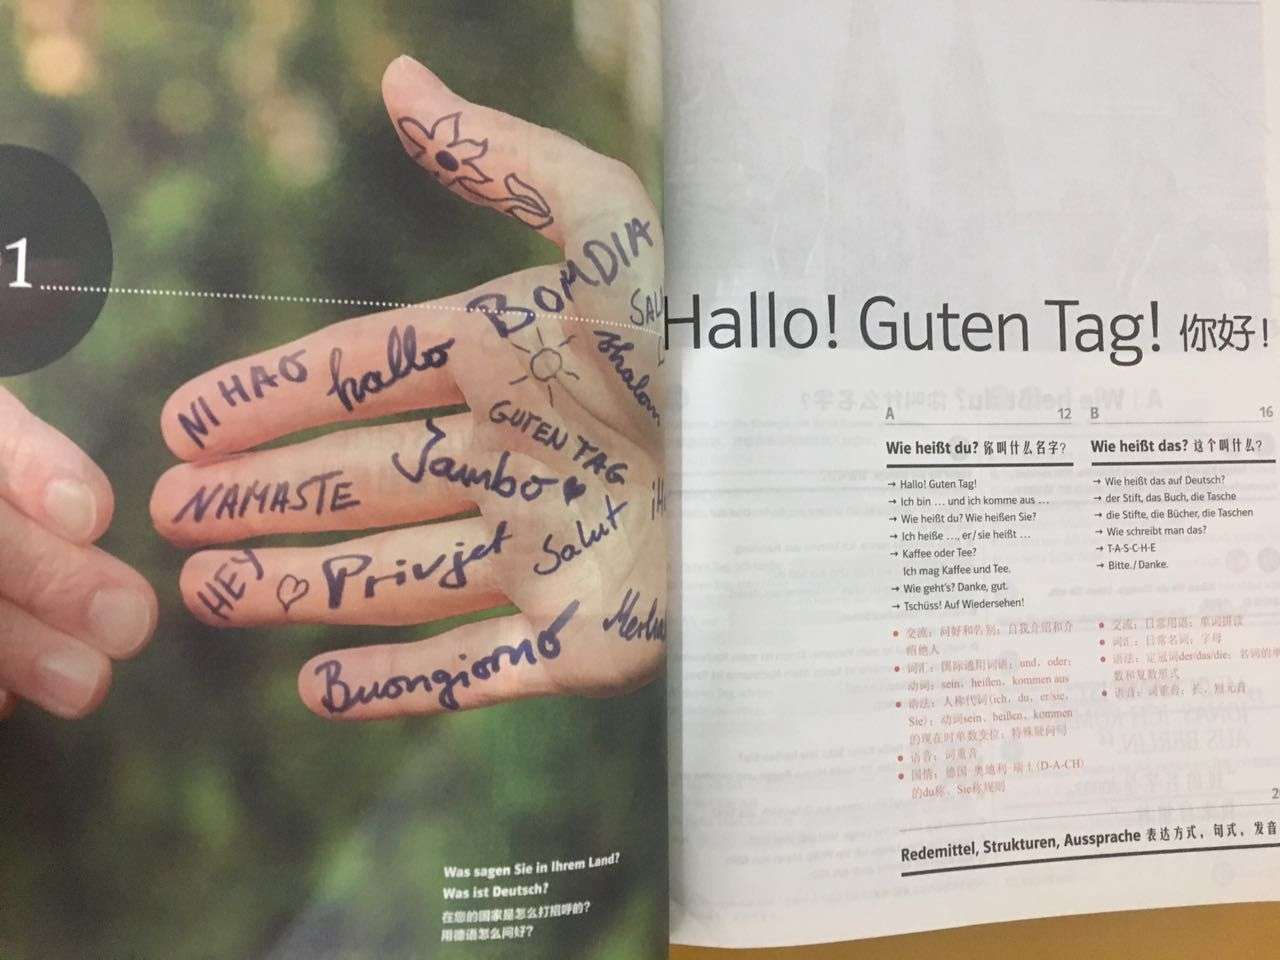 1
BOMDIA
NI HAO
hallo
Shalom
GUTEN TAG
Jambo
NAMASTE
Salut
HEY
Privjet
Buongiorno
Was sagen Sie in Ihrem Land?
Was ist Deutsch?
在您的国家是怎么打招呼的?
用德语怎么问好?
Hallo! Guten Tag! 你好!
A 12
Wie heißt du? 你叫什么名字?
→ Hallo! Guten Tag!
→ Ich bin … und ich komme aus …
→ Wie heißt du? Wie heißen Sie?
→ Ich heiße …, er/sie heißt …
→ Kaffee oder Tee?
Ich mag Kaffee und Tee.
→ Wie geht's? Danke, gut.
→ Tschüss! Auf Wiedersehen!
• 交流：问好和告别；自我介绍和介
绍他人
• 词汇：国际通用词语；und、oder；
动词：sein、heißen、kommen aus
• 语法：人称代词(ich、du、er/sie、
Sie)；动词sein、heißen、kommen
的现在时单数变位；特殊疑问句
• 语音：词重音
• 国情：德国-奥地利-瑞士(D-A-CH)
的du称、Sie称规则
B 16
Wie heißt das? 这个叫什么?
→ Wie heißt das auf Deutsch?
→ der Stift, das Buch, die Tasche
→ die Stifte, die Bücher, die Taschen
→ Wie schreibt man das?
→ T-A-S-C-H-E
→ Bitte./Danke.
• 交流：日常用语；单词拼读
• 词汇：日常名词；字母
• 语法：定冠词der/das/die；名词的单
数和复数形式
• 语音：词重音；长、短元音
Redemittel, Strukturen, Aussprache 表达方式，句式，发音